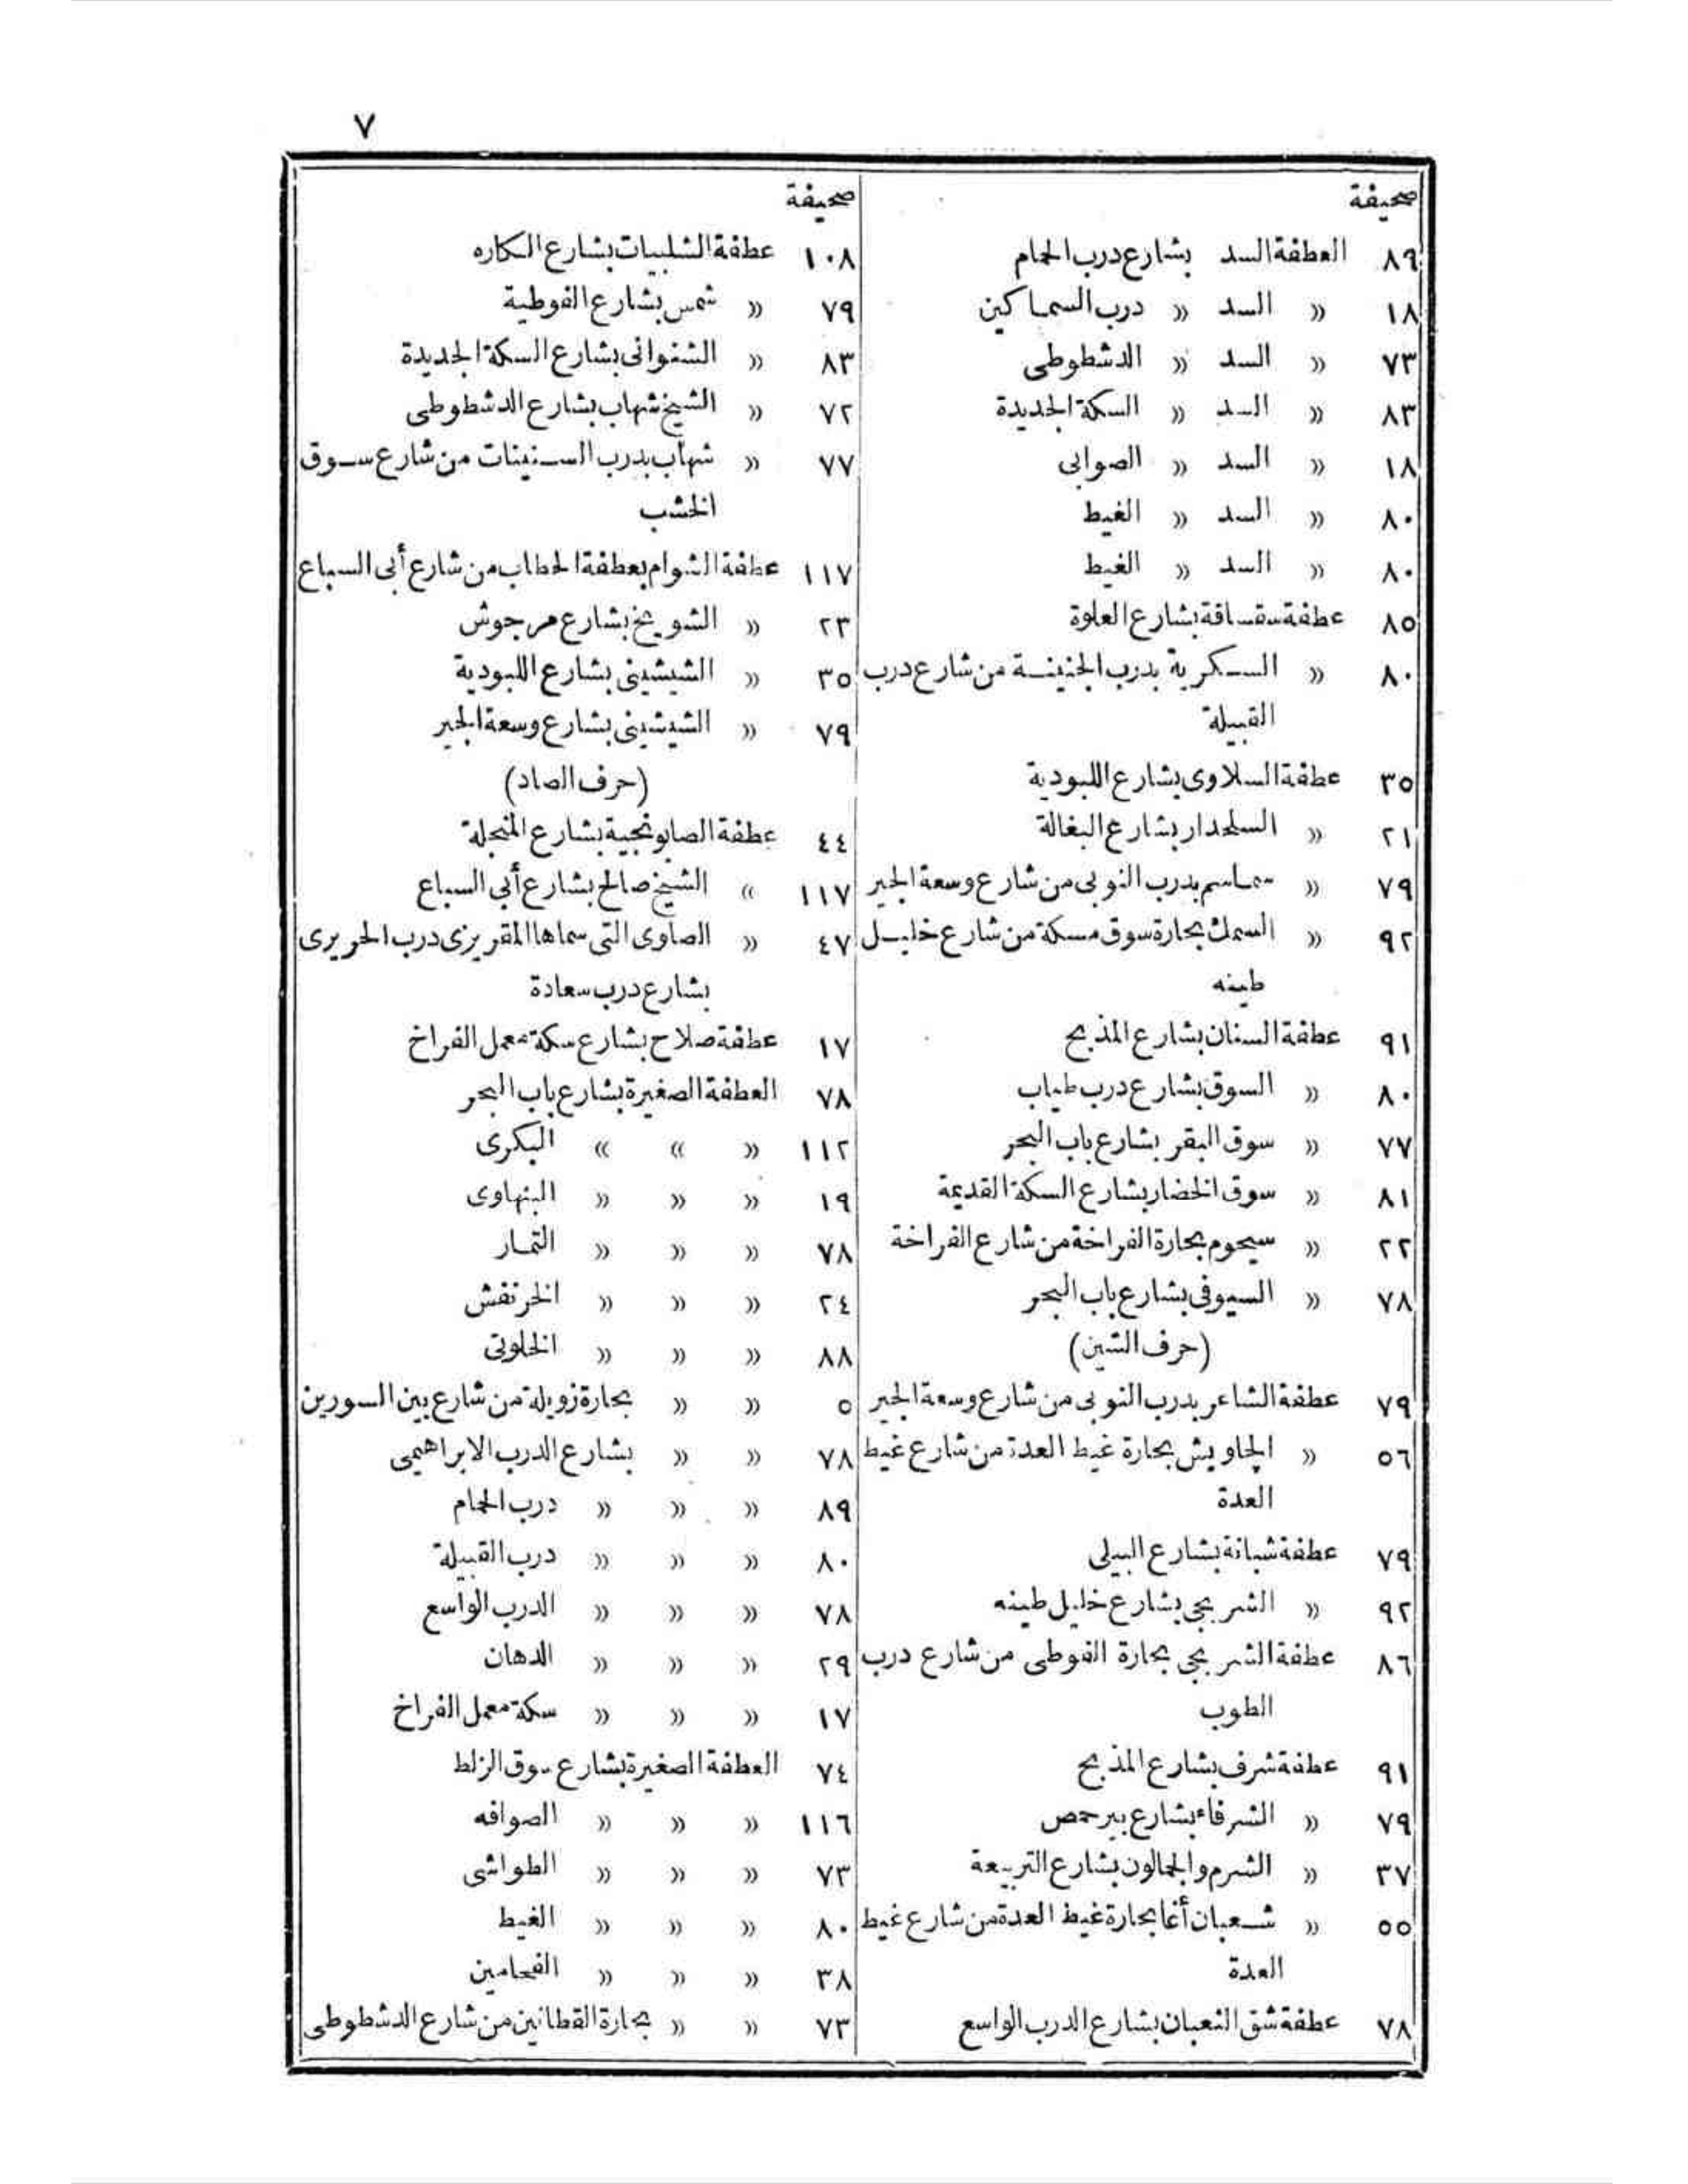 ٧
صحيفة
٨٩ العطفة السد بشارع درب الحمام
١٨ » السد » درب السماكين
٧٣ » السد » الدشطوطى
٨٣ » السد » السكة الجديدة
١٨ » السد » الصوابى
٨٠ » السد » الغيط
٨٠ » السد » الغيط
٨٥ عطفة سقساقة بشارع العلوة
٨٠ » السكرية بدرب الجنينة من شارع درب
القبيلة
٣٥ عطفة السلاوى بشارع اللبودية
٢١ » السلحدار بشارع البغالة
٧٩ » سماسم بدرب النوبى من شارع وسعة الجير
٩٢ » السمك بحارة سوق مسكة من شارع خليل
طينه
٩١ عطفة السنان بشارع المذبح
٨٠ » السوق بشارع درب طياب
٧٧ » سوق البقر بشارع باب البحر
٨١ » سوق الخضار بشارع السكة القديمة
٢٢ » سيحوم بحارة الفراخة من شارع الفراخة
٧٨ » السيوفى بشارع باب البحر
(حرف الشين)
٧٩ عطفة الشاعر بدرب النوبى من شارع وسعة الجير
٥٦ » الجاويش بحارة غيط العدة من شارع غيط
العدة
٧٩ عطفة شبانة بشارع البيلى
٩٢ » الشربجى بشارع خليل طينه
٨٦ عطفة الشربجى بحارة الفوطى من شارع درب
الطوب
٩١ عطفة شرف بشارع المذبح
٧٩ » الشرفاء بشارع بير حمص
٣٧ » الشرم والجمالون بشارع التربيعة
٥٥ » شعبان أغا بحارة غيط العدة من شارع غيط
العدة
٧٨ عطفة شق الثعبان بشارع الدرب الواسع
صحيفة
١٠٨ عطفة الشلبيات بشارع الكاره
٧٩ » شمس بشارع الفوطية
٨٣ » الشنوانى بشارع السكة الجديدة
٧٢ » الشيخ شهاب بشارع الدشطوطى
٧٧ » شهاب بدرب السنينات من شارع سوق
الخشب
١١٧ عطفة الشوام بعطفة الحطاب من شارع أبى السباع
٢٣ » الشويخ بشارع مرجوش
٣٥ » الشيشينى بشارع اللبودية
٧٩ » الشيشينى بشارع وسعة الجير
(حرف الصاد)
٤٤ عطفة الصابونجية بشارع المنجلة
١١٧ » الشيخ صالح بشارع أبى السباع
٤٧ » الصاوى التى سماها المقريزى درب الحريرى
بشارع درب سعادة
١٧ عطفة صلاح بشارع سكة معمل الفراخ
٧٨ العطفة الصغيرة بشارع باب البحر
١١٢ » » » البكرى
١٩ » » » البنهاوى
٧٨ » » » التمار
٢٤ » » » الخرنفش
٨٨ » » » الخلوتى
٥ » » بحارة زويلة من شارع بين السورين
٧٨ » » بشارع الدرب الابراهيمى
٨٩ » » » درب الحمام
٨٠ » » » درب القبيلة
٧٨ » » » الدرب الواسع
٢٩ » » » الدهان
١٧ » » » سكة معمل الفراخ
٧٤ العطفة الصغيرة بشارع سوق الزلط
١١٦ » » » الصوافه
٧٣ » » » الطواشى
٨٠ » » » الغيط
٣٨ » » » الفحامين
٧٣ » » بحارة القطانين من شارع الدشطوطى